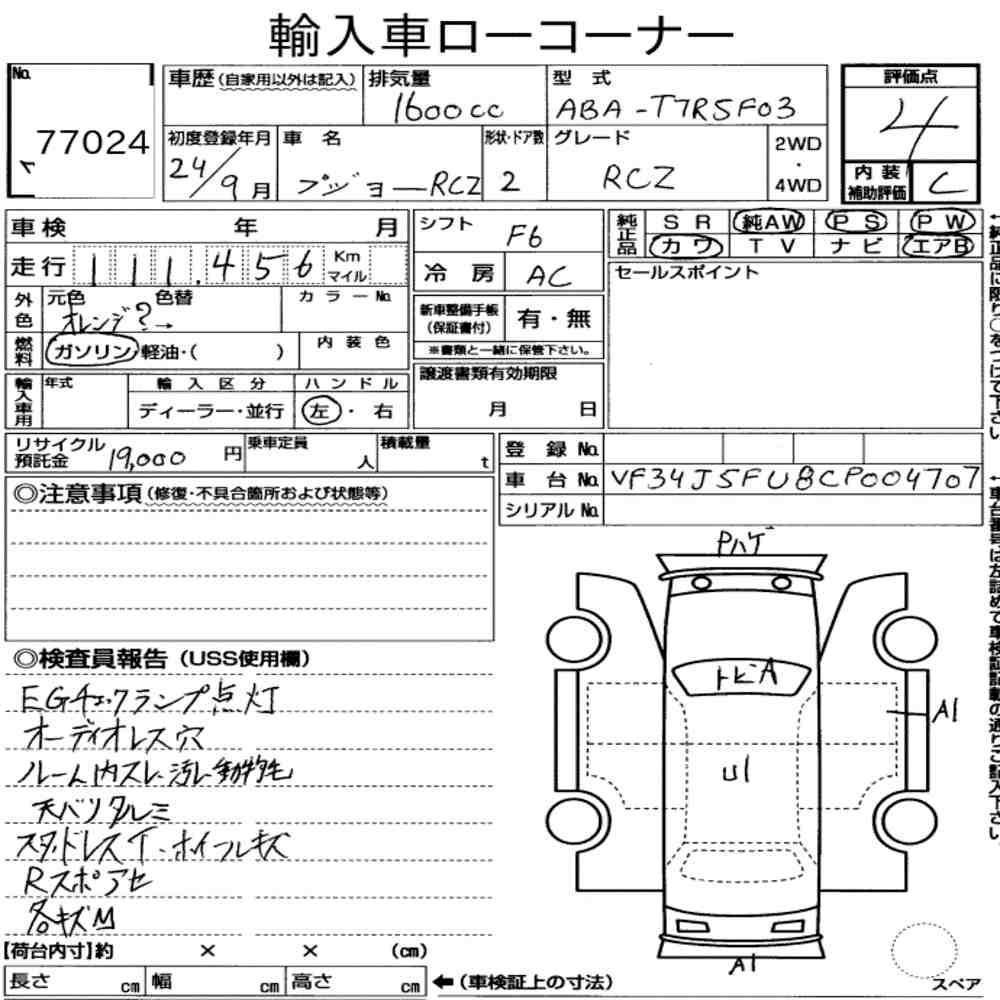 輸入車ローコーナー
No.
77024
車歴(自家用以外は記入)
排気量
1600cc
型 式
ABA-T7R5F03
評価点
4
初度登録年月
24/9月
車 名
プジョーRCZ
形状・ドア数
2
グレード
RCZ
2WD
・
4WD
内 装
補助評価
C
車検 年 月
シフト
F6
純正品
SR 純AW PS PW
カワ TV ナビ エアB
走行 111.456 Km
マイル
冷 房
AC
セールスポイント
外色
元色 色替
オレンジ?→
カラーNo.
新車整備手帳
(保証書付)
有・無
※書類と一緒に保管下さい。
燃料
ガソリン・軽油・( )
内 装 色
輸入車用
年式
輸 入 区 分
ディーラー・並行
ハ ン ド ル
左・右
譲渡書類有効期限
月 日
リサイクル
預託金
19,000円
乗車定員
人
積載量
t
登 録 No.
車 台 No.
VF34J5FU8CP004707
シリアルNo.
◎注意事項(修復・不具合箇所および状態等)
◎検査員報告(USS使用欄)
EGチェックランプ点灯
オーディオレス穴
ルーム内スレ・汚レ・動物毛
天バリタルミ
スタッドレスT・ホイールキズ
Rスポアセ
各キズM
Pハゲ
トビA
A1
U1
A1
スペア
【荷台内寸】約 × × (cm)
長さ cm 幅 cm 高さ cm
←(車検証上の寸法)
←純正品に限り○をつけて下さい。